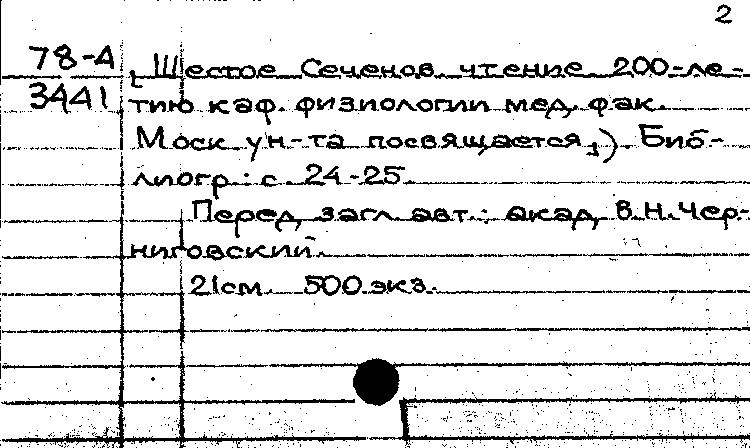 2
78-4 [Шестое Сеченов. чтение 200-ле-
3441 тию каф. физиологии мед. фак.
Моск ун-та посвящается]) Биб-
лиогр.: с. 24-25.
Перед загл. авт.: акад. В.Н. Чер-
ниговский.
21см. 500 экз.